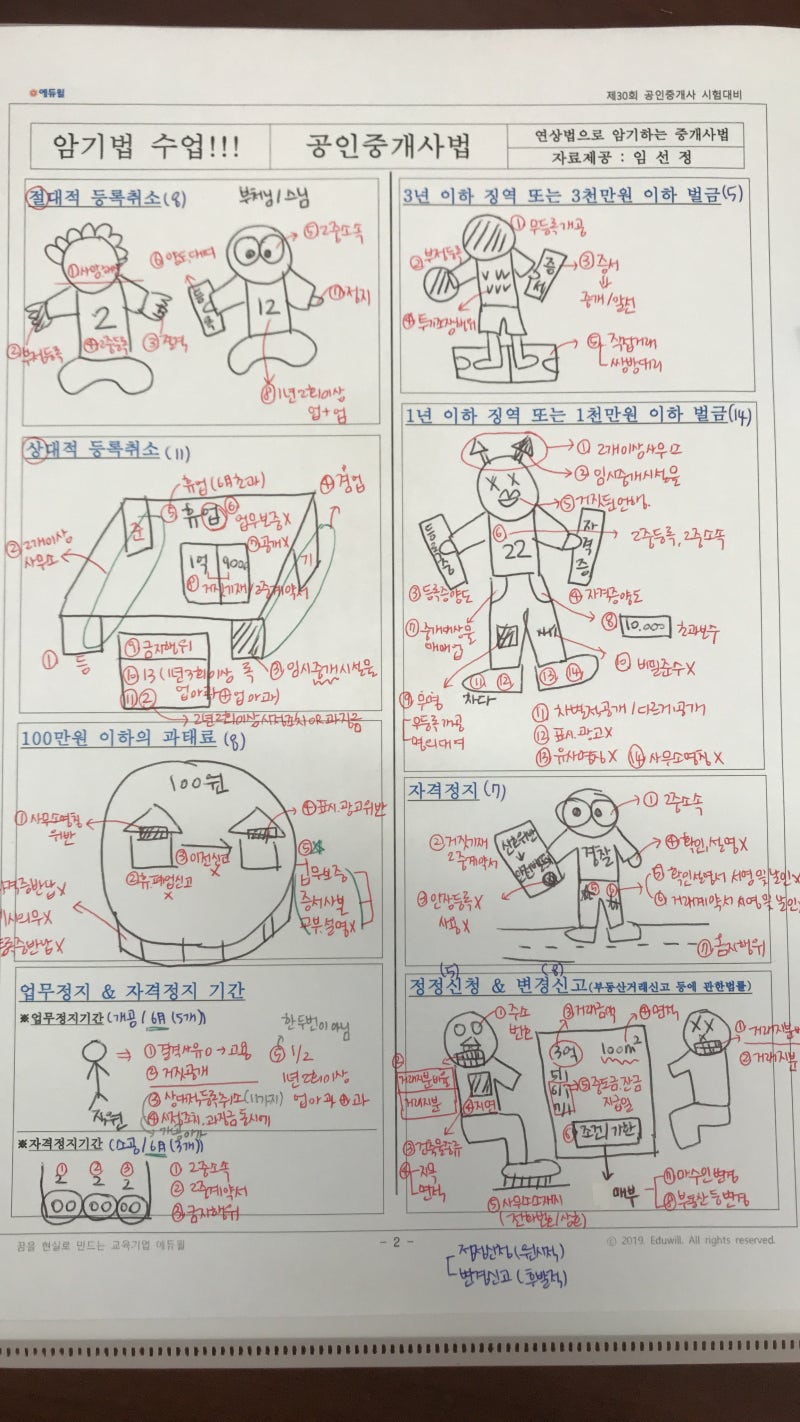 에듀윌
제30회 공인중개사 시험대비
암기법 수업!!!
공인중개사법
연상법으로 암기하는 중개사법
자료제공 : 임 선 정
절대적 등록취소(8)
부처님/스님
①사망해산
②부정등록
2
④2중등록
③결격
⑥양도대여
등록
⑤2중소속
12
⑦정지
⑧1년2회이상
업+업
3년 이하 징역 또는 3천만원 이하 벌금(5)
①무등록개공
②부정등록
증서
③증서
중개/알선
④투기조장행위
⑤직접거래
쌍방대리
상대적 등록취소(11)
휴업(6月초과)
⑤휴업⑥
업무보증X
④겸업
②2개이상
사무소
⑦공개X
1억 9000
⑧거짓기재/2중계약서
기
①등
⑨금지행위
⑩13(1년3회이상
업아과⊕업아과)
⑪②
③임시중개시설물
2년2회이상시정조치OR과징금
1년 이하 징역 또는 1천만원 이하 벌금(14)
①2개이상사무소
②임시중개시설물
⑤거짓된언행.
등록증
⑥
22
자격증
2중등록, 2중소속
③등록증양도
④자격증양도
⑦중개대상물
매매업
⑧10.000초과보수
⑩비밀준수X
⑨무명
무등록개공
명의대여
⑪⑫
⑬⑭
차다
⑪차별적공개/다르게공개
⑫표시.광고X
⑬유사명칭X ⑭사무소명칭X
100만원 이하의 과태료(8)
100원
①사무소명칭
위반
④표시.광고위반
③이전신고
X
②휴.폐업신고
X
⑤
업무보증
증서사본
교부.설명X
자격증반납X
등록증반납X
자격정지(7)
①2중소속
②거짓기재
2중계약서
경찰
④확인,설명X
③인장등록X
사용X
⑤확인설명서 서명및날인X
⑥거래계약서 서명및날인
⑦금지행위
업무정지 & 자격정지 기간
※업무정지기간(개공/6月(5개))
한두번이 아님
직원
①결격사유O→고용
②거짓공개
③상대적등록취소(11가지)
④시정조치.과징금동시에
⑤1/2
1년2회이상
업아과⊕과
※자격정지기간(소공/6月(3개))
① ② ③
2 2 2
①2중소속
②2중계약서
③금지행위
(5) (8)
정정신청 & 변경신고(부동산거래신고 등에 관한법률)
①주소
번호
②
거래지분비율
거래지분
④지면
③건축물종류
④지목
면적
⑤사무소소재지
(전화번호/상호)
③거래금액
④면적
3억
100m²
5/1
6/1
7/1
⑤중도금.잔금
지급일
⑥조건/기한
매부
⑦매수인변경
⑧부동산등변경
①거래지분비
②거래지분
꿈을 현실로 만드는 교육기업 에듀윌
- 2 -
ⓒ 2019. Eduwill. All rights reserved.
정정신청(원시적)
변경신고(후발적)